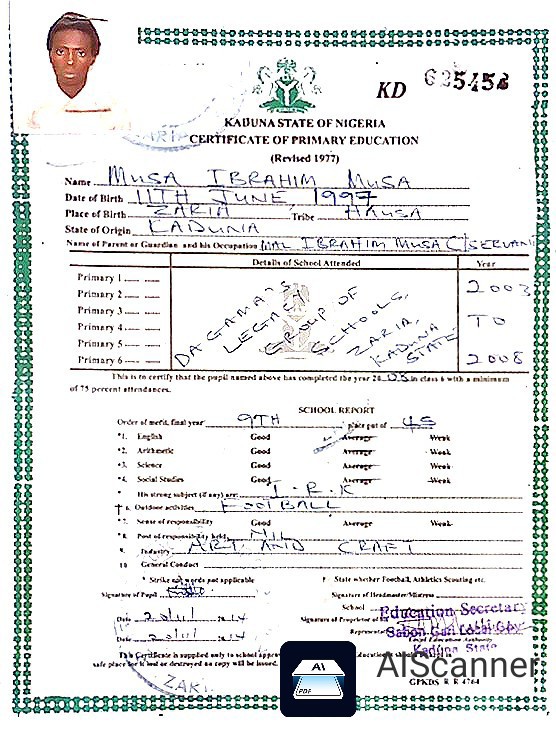 KD 625458
KADUNA STATE OF NIGERIA
CERTIFICATE OF PRIMARY EDUCATION
(Revised 1977)
Name MUSA IBRAHIM MUSA
Date of Birth 11TH JUNE, 1997
Place of Birth ZARIA Tribe HAUSA
State of Origin KADUNA
Name of Parent or Guardian and his Occupation MAL IBRAHIM MUSA C/SERVANT
Details of School Attended Year
Primary 1 2003
Primary 2
Primary 3 TO
Primary 4
Primary 5
Primary 6 2008
DAGAMA'S
LEGACY
GROUP OF
SCHOOLS,
ZARIA,
KADUNA
STATE
This is to certify that the pupil named above has completed the year 2008 in class 6 with a minimum
of 75 percent attendances.
SCHOOL REPORT
Order of merit, final year 9TH place out of 45
*1. English Good Average Weak
*2. Arithmetic Good Average Weak
*3. Science Good Average Weak
*4. Social Studies Good Average Weak
* His strong subject (if any) are: I.R.K
† 6. Outdoor activities FOOTBALL
*7. Sense of responsibility Good Average Weak
*8. Post of responsibility held NIL
9. Industry ART AND CRAFT
10 General Conduct
* Strike not words not applicable † State whether Football, Athletics Scouting etc.
Signature of Pupil Signature of Headmaster/Mistress
School
Education Secretary
Date 20/11/ 2014 Signature of Proprietor or
Representative
Sabon Gari Local Gov
Date 20/11/ 2014 Local Education Authority
Kaduna State
This Certificate is supplied only to school
safe place for lost or destroyed no copy will be issued.
ZARI
AI
PDF
AIScanner
GPKDS R R 4764